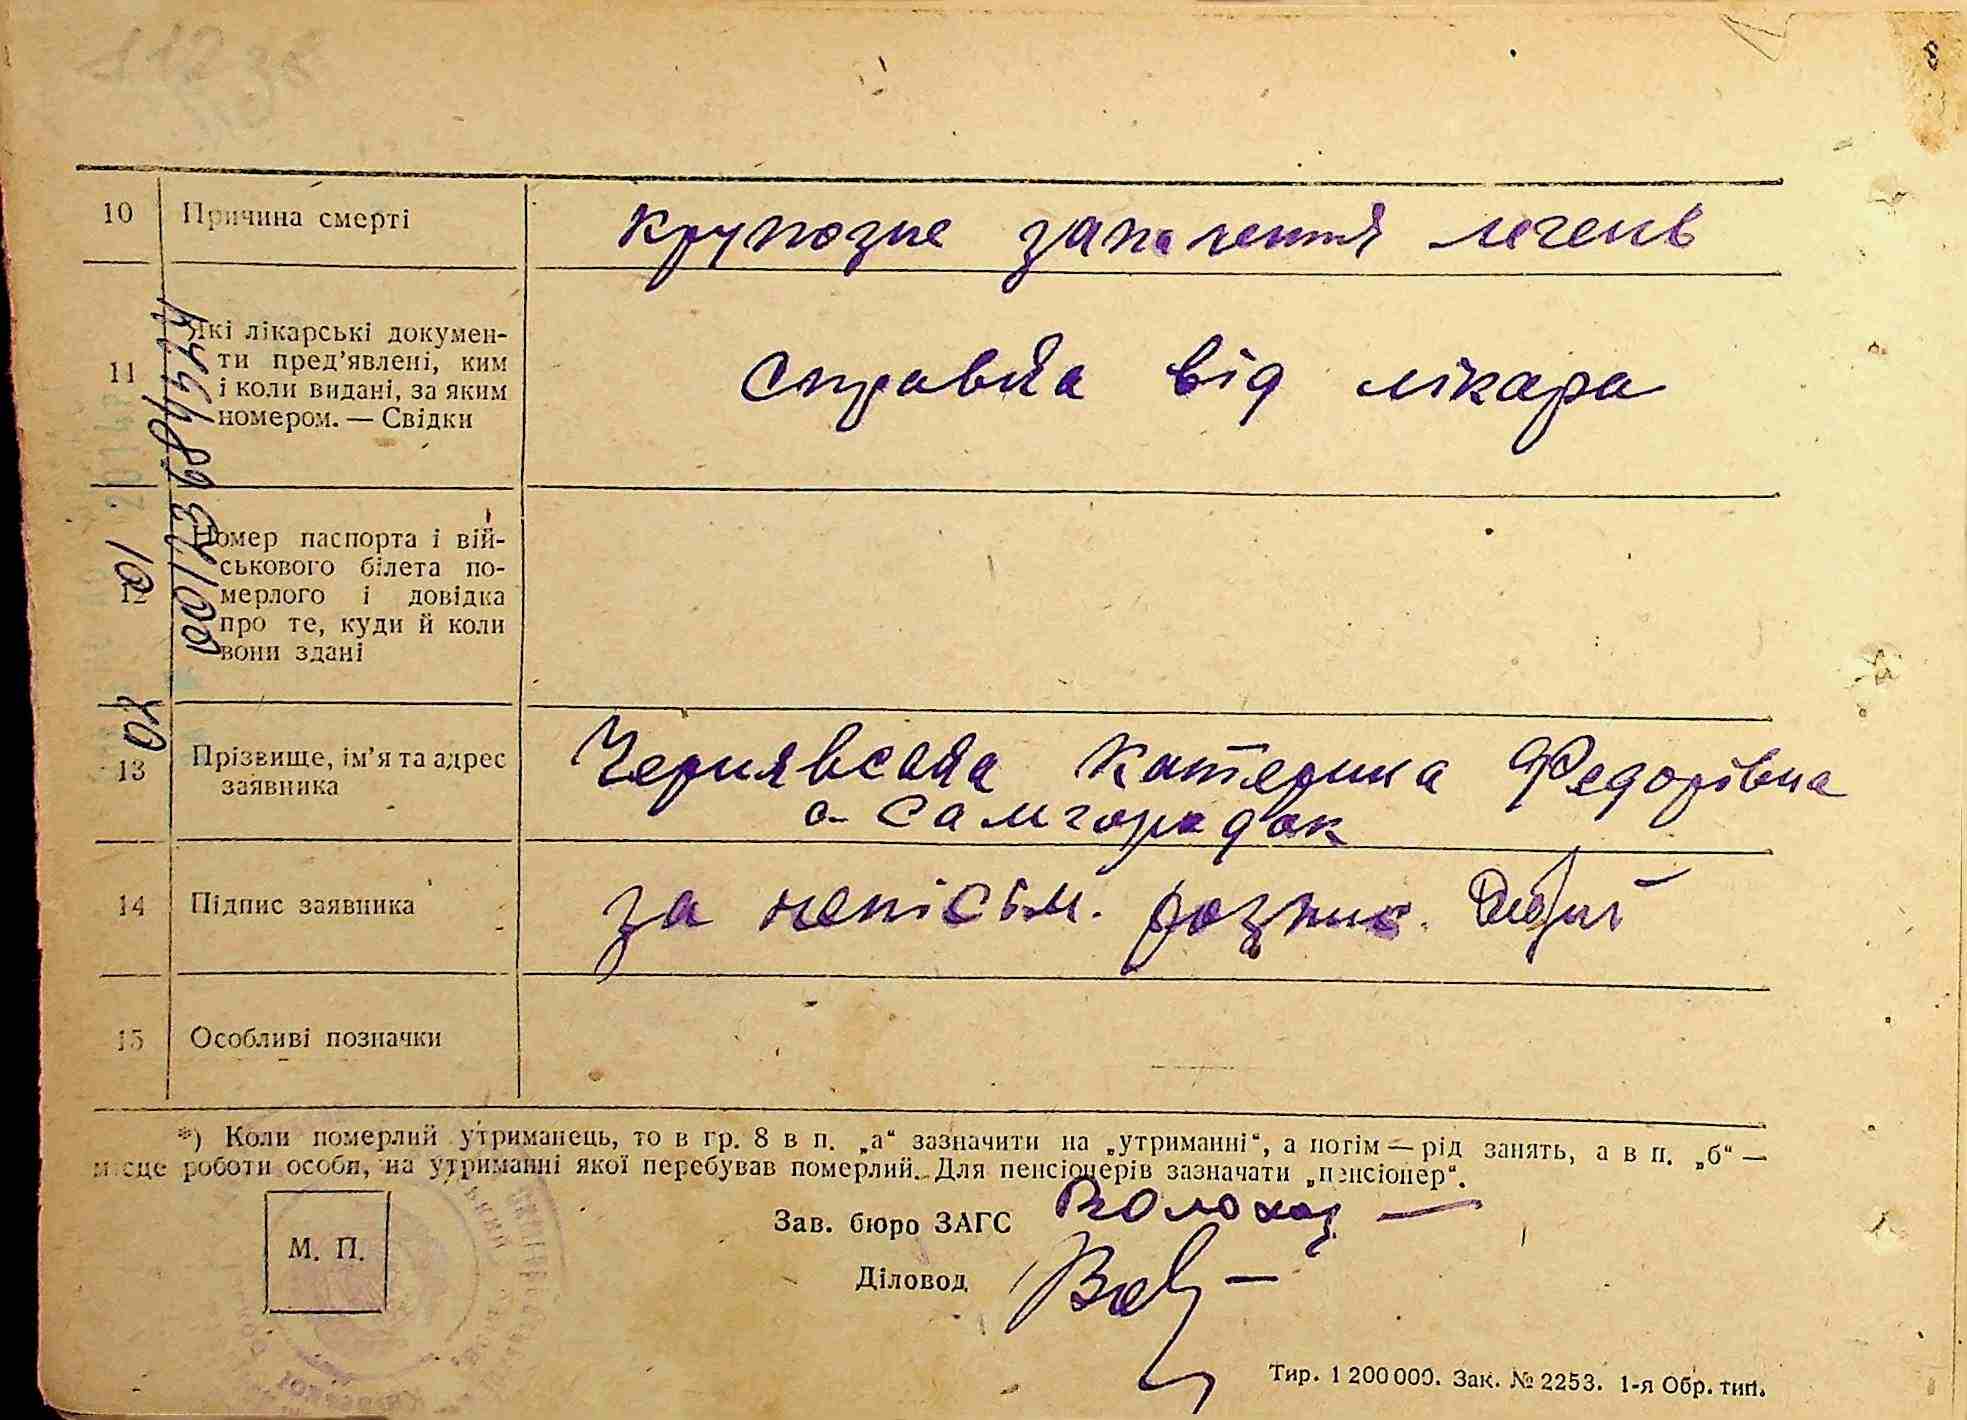 10 Причина смерті
крупозне запалення легень
11 Які лікарські докумен-
ти пред’явлені, ким
і коли видані, за яким
номером. — Свідки
справка від лікара
12 Номер паспорта і вій-
ськового білета по-
мерлого і довідка
про те, куди й коли
вони здані
13 Прізвище, ім’я та адрес
заявника
Чернявська Катерина Федорівна
с. Самгородок
14 Підпис заявника
за непісьм. розпис.
15 Особливі позначки
*) Коли померлий утриманець, то в гр. 8 в п. „а“ зазначити на „утриманні“, а потім — рід занять, а в п. „б“ —
місце роботи особи, на утриманні якої перебував померлий. Для пенсіонерів зазначати „пенсіонер“.
М. П.
Зав. бюро ЗАГС
Діловод
Тир. 1 200 000. Зак. № 2253. 1-я Обр. тип.